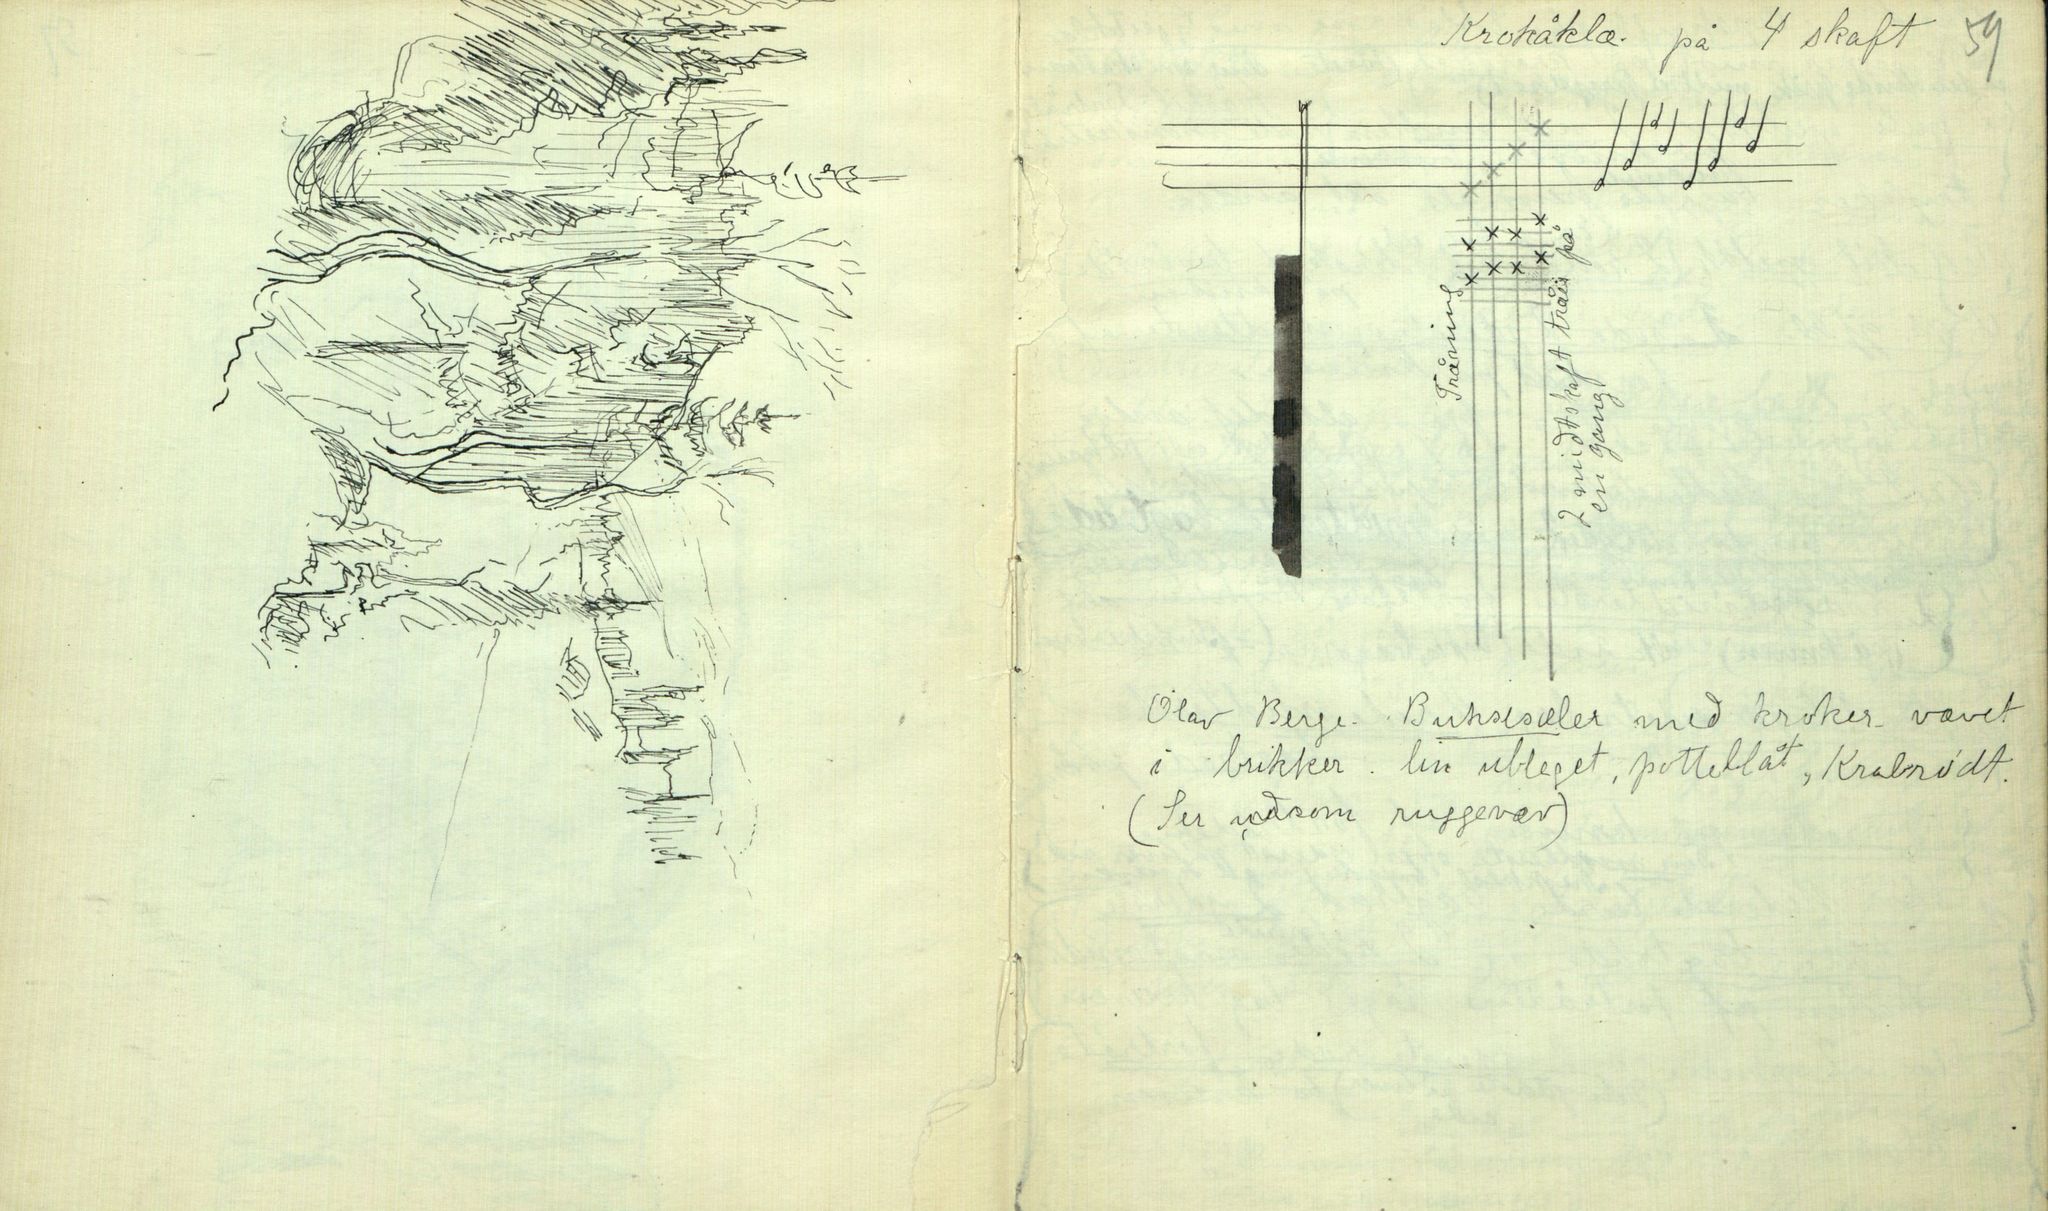 Krokåklæ. på 4 skaft 59
Tråning
2 midtskaft tråes på
en gang
Olav Berge. Buksesæler med kroker vævet
i brikker. lin ubleget, potteblåt, Krabrødt.
(Ser som ruggevæv)